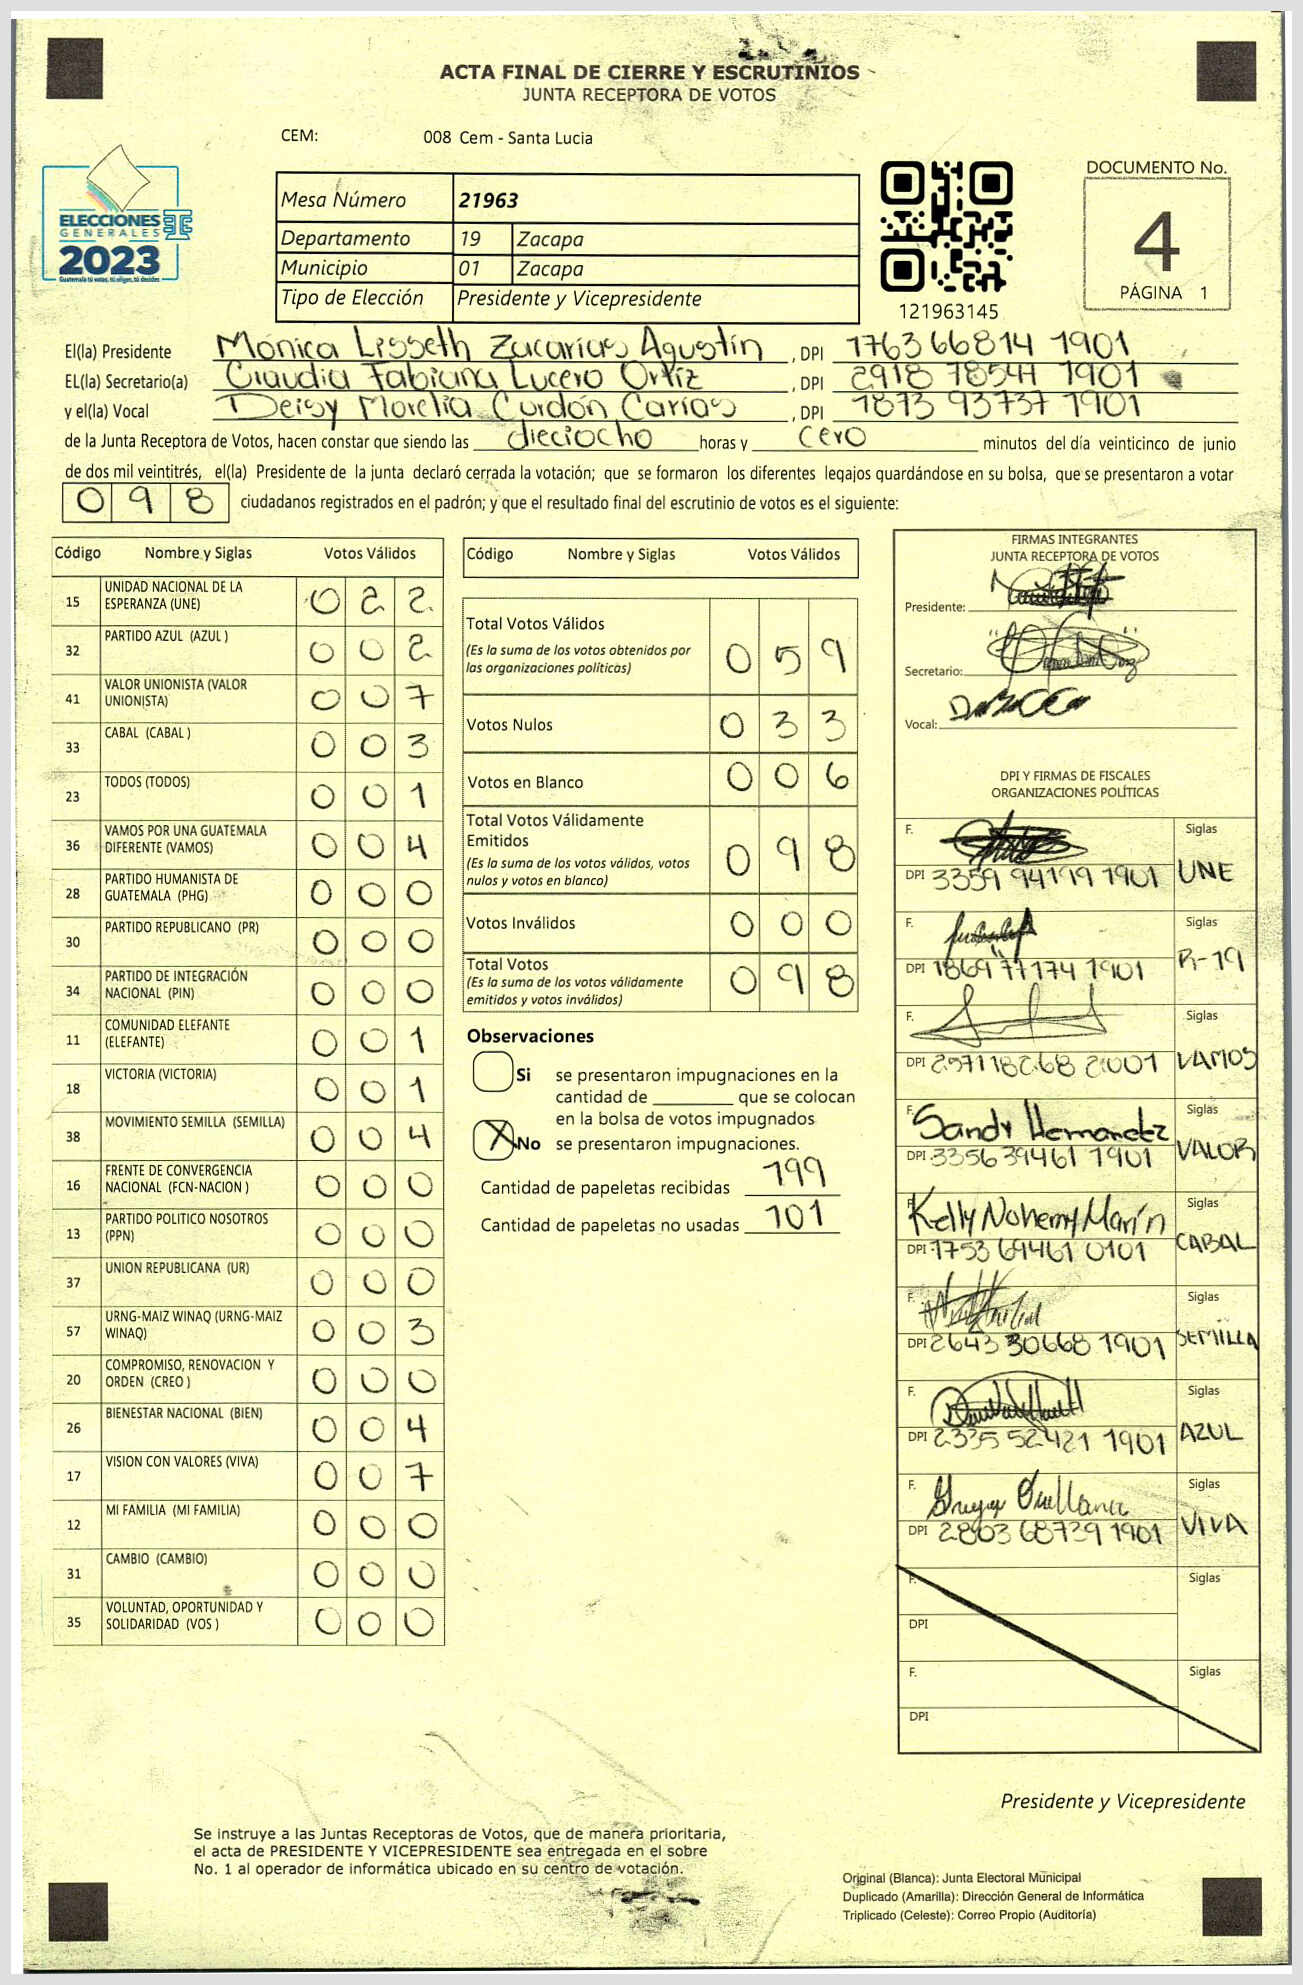 ACTA FINAL DE CIERRE Y ESCRUTINIOS
JUNTA RECEPTORA DE VOTOS
CEM: 008 Cem - Santa Lucia
ELECCIONES
GENERALES
2023
Guatemala tú votas, tú eliges, tú decides
Mesa Número 21963
Departamento 19 Zacapa
Municipio 01 Zacapa
Tipo de Elección Presidente y Vicepresidente
121963145
DOCUMENTO No.
4
PÁGINA 1
El(la) Presidente Mónica Lisseth Zacarías Agustín , DPI 1763 66814 1901
EL(la) Secretario(a) Claudia Fabiana Lucero Ortíz , DPI 2918 78541 1901
y el(la) Vocal Deisy Morelia Cordón Carías , DPI 1873 93737 1901
de la Junta Receptora de Votos, hacen constar que siendo las dieciocho horas y cero minutos del día veinticinco de junio
de dos mil veintitrés, el(la) Presidente de la junta declaró cerrada la votación; que se formaron los diferentes legajos guardándose en su bolsa, que se presentaron a votar
098 ciudadanos registrados en el padrón; y que el resultado final del escrutinio de votos es el siguiente:
Código Nombre y Siglas Votos Válidos
15 UNIDAD NACIONAL DE LA ESPERANZA (UNE) 0 2 2
32 PARTIDO AZUL (AZUL ) 0 0 2
41 VALOR UNIONISTA (VALOR UNIONISTA) 0 0 7
33 CABAL (CABAL ) 0 0 3
23 TODOS (TODOS) 0 0 1
36 VAMOS POR UNA GUATEMALA DIFERENTE (VAMOS) 0 0 4
28 PARTIDO HUMANISTA DE GUATEMALA (PHG) 0 0 0
30 PARTIDO REPUBLICANO (PR) 0 0 0
34 PARTIDO DE INTEGRACIÓN NACIONAL (PIN) 0 0 0
11 COMUNIDAD ELEFANTE (ELEFANTE) 0 0 1
18 VICTORIA (VICTORIA) 0 0 1
38 MOVIMIENTO SEMILLA (SEMILLA) 0 0 4
16 FRENTE DE CONVERGENCIA NACIONAL (FCN-NACION ) 0 0 0
13 PARTIDO POLITICO NOSOTROS (PPN) 0 0 0
37 UNION REPUBLICANA (UR) 0 0 0
57 URNG-MAIZ WINAQ (URNG-MAIZ WINAQ) 0 0 3
20 COMPROMISO, RENOVACION Y ORDEN (CREO ) 0 0 0
26 BIENESTAR NACIONAL (BIEN) 0 0 4
17 VISION CON VALORES (VIVA) 0 0 7
12 MI FAMILIA (MI FAMILIA) 0 0 0
31 CAMBIO (CAMBIO) 0 0 0
35 VOLUNTAD, OPORTUNIDAD Y SOLIDARIDAD (VOS ) 0 0 0
Código Nombre y Siglas Votos Válidos
Total Votos Válidos 0 5 9
(Es la suma de los votos obtenidos por
las organizaciones políticas)
Votos Nulos 0 3 3
Votos en Blanco 0 0 6
Total Votos Válidamente
Emitidos 0 9 8
(Es la suma de los votos válidos, votos
nulos y votos en blanco)
Votos Inválidos 0 0 0
Total Votos 0 9 8
(Es la suma de los votos válidamente
emitidos y votos inválidos)
Observaciones
Si se presentaron impugnaciones en la
cantidad de ________ que se colocan
en la bolsa de votos impugnados
X No se presentaron impugnaciones.
Cantidad de papeletas recibidas 199
Cantidad de papeletas no usadas 101
FIRMAS INTEGRANTES
JUNTA RECEPTORA DE VOTOS
Presidente:
Secretario:
Vocal:
DPI Y FIRMAS DE FISCALES
ORGANIZACIONES POLÍTICAS
F. Siglas
DPI 3359 94199 1901 UNE
F. Siglas
DPI 1869 77174 1901 R-19
F. Siglas
DPI 297118268 2001 VAMOS
F. Sandy Hernandez Siglas
DPI 3356 39461 1901 VALOR
F. Kelly Nohemy Marín Siglas
DPI 1753 69461 0101 CABAL
F. Siglas
DPI 2643 30668 1901 SEMILLA
F. Siglas
DPI 2335 52421 1901 AZUL
F. Orellana Siglas
DPI 2803 68739 1901 VIVA
F. Siglas
DPI
F. Siglas
DPI
Presidente y Vicepresidente
Se instruye a las Juntas Receptoras de Votos, que de manera prioritaria,
el acta de PRESIDENTE Y VICEPRESIDENTE sea entregada en el sobre
No. 1 al operador de informática ubicado en su centro de votación.
Original (Blanca): Junta Electoral Municipal
Duplicado (Amarilla): Dirección General de Informática
Triplicado (Celeste): Correo Propio (Auditoría)